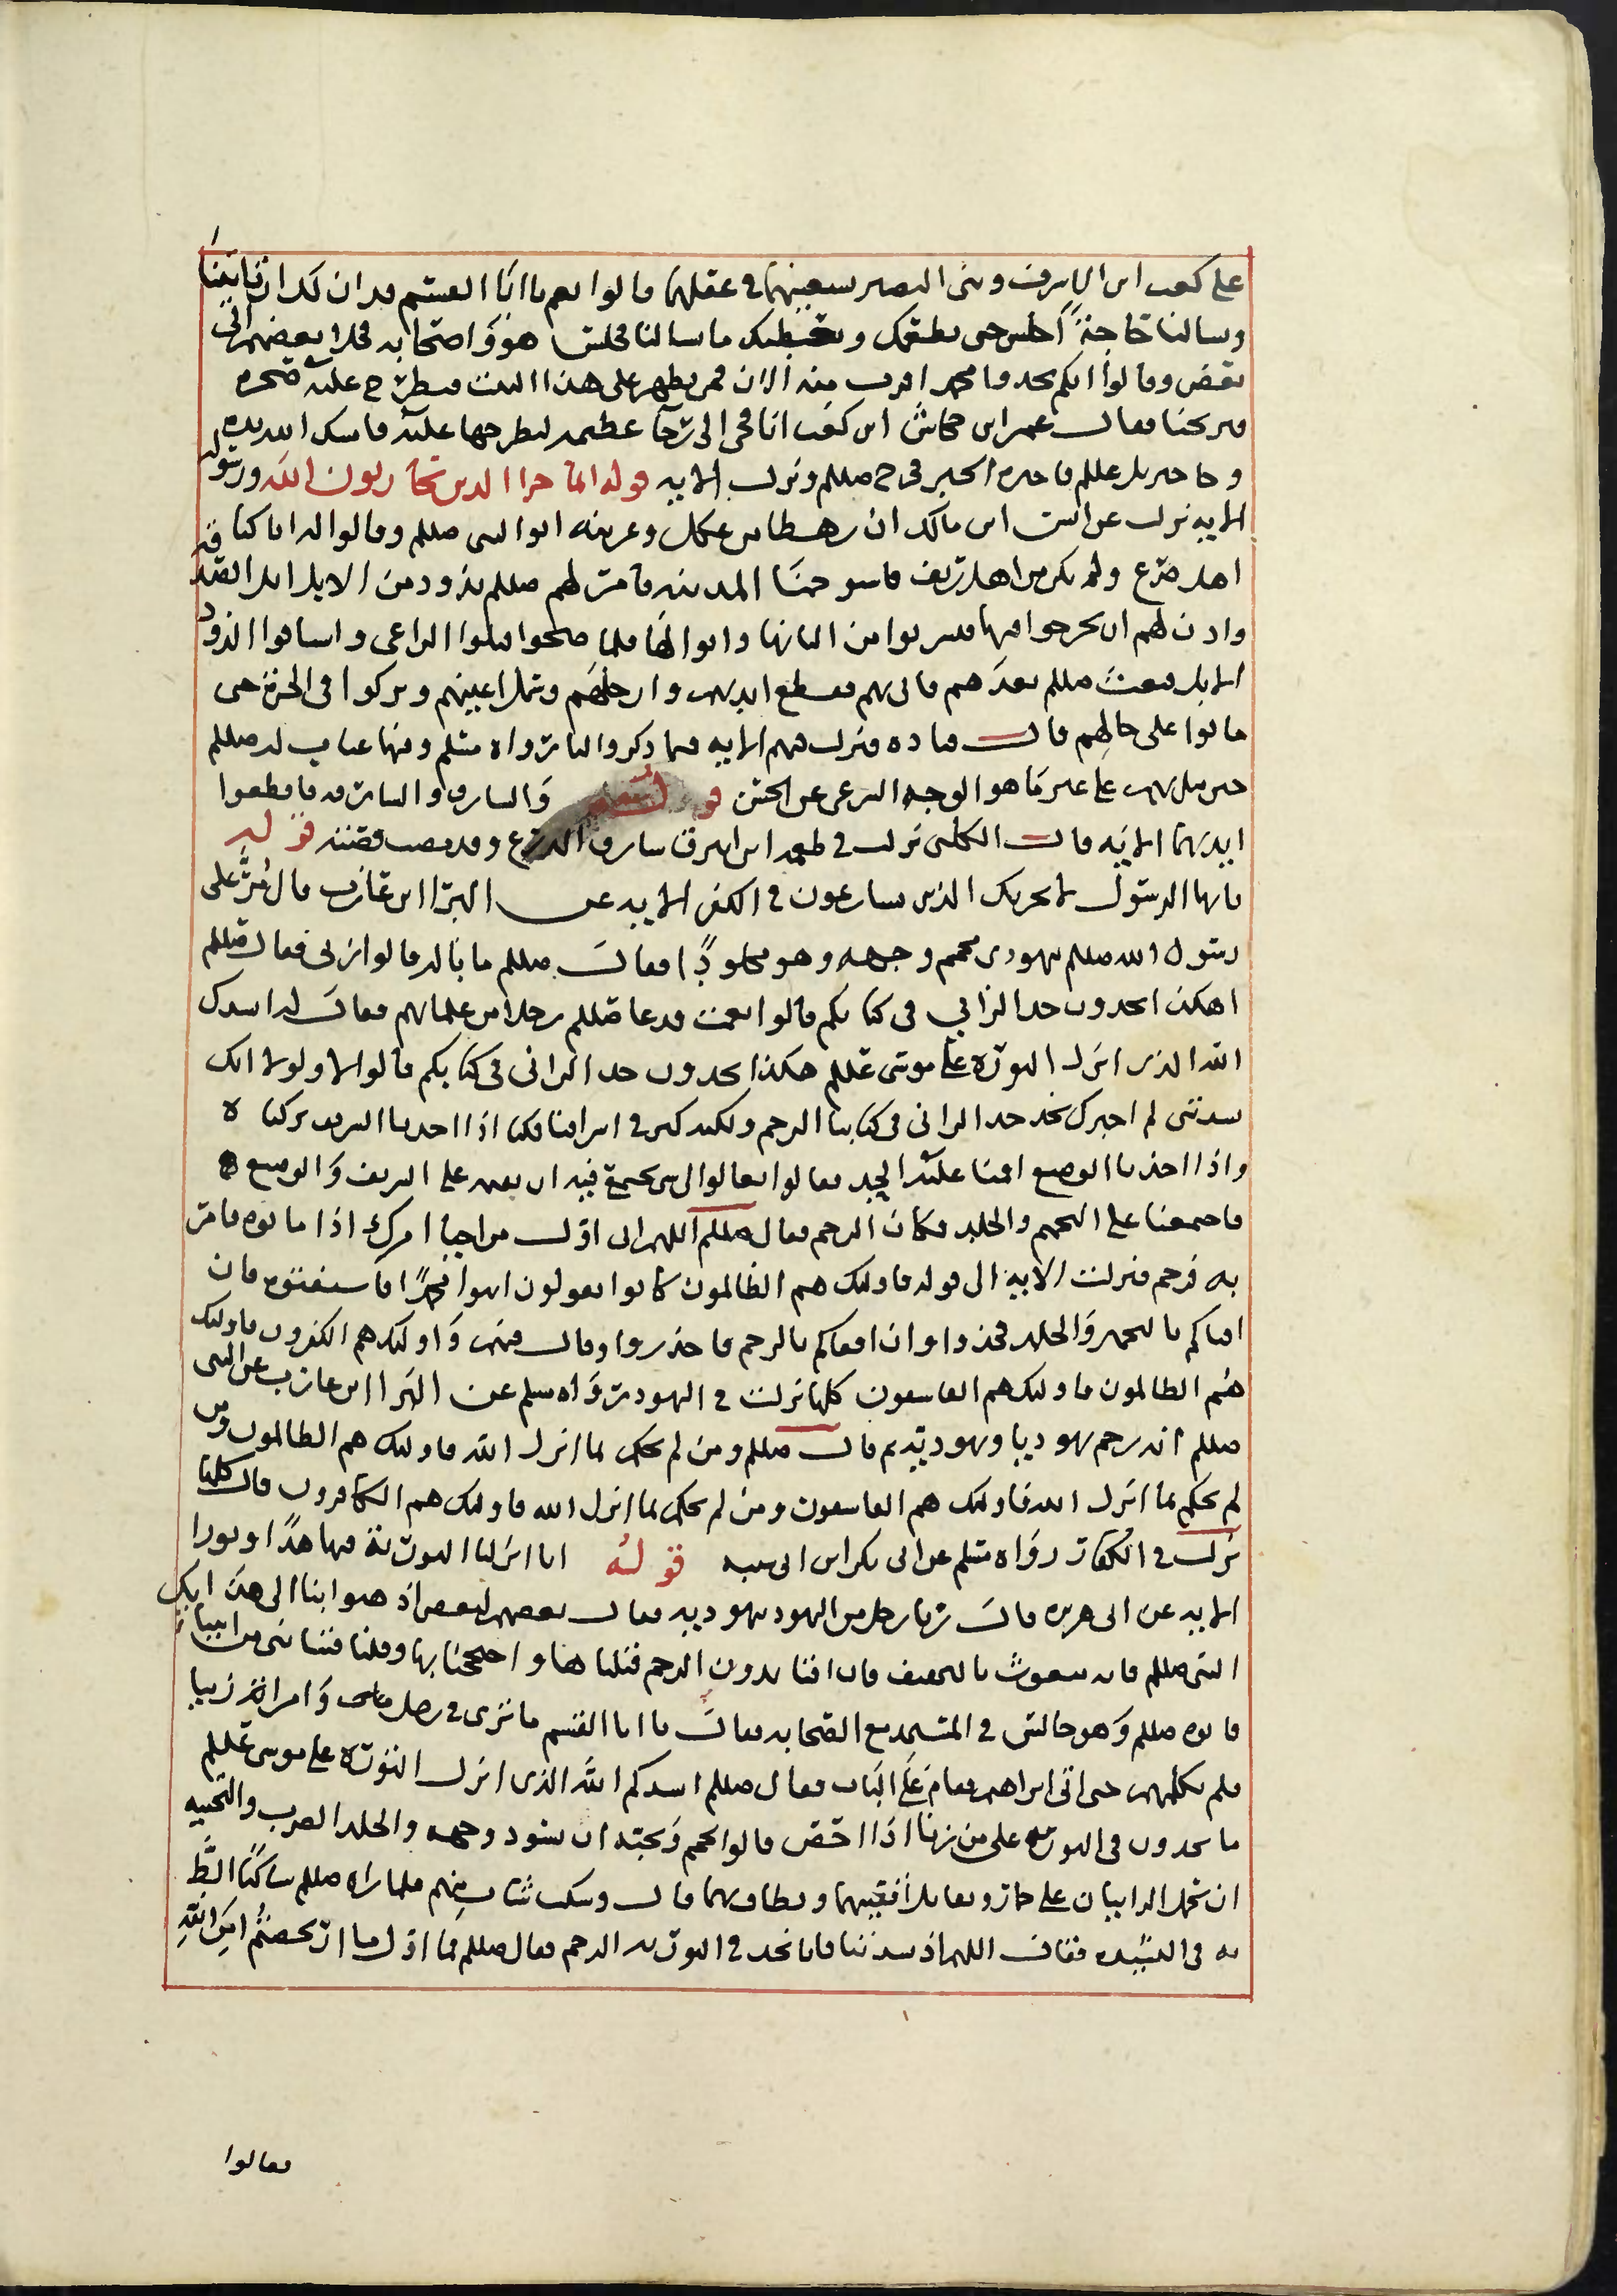 على كعب ابن الاشرف وبنى النضير يستعينهم في عقلهما قالوا نعم يا ابا القسم قد ان لك ان تاتينا
وتسالنا حاجة اجلس حتى نطعمك ونعطيك ما سالتنا فجلس هو واصحابه فخلا بعضهم الى
بعض وقالوا انكم لم تجدوا محمدا اقرب منه الان فمن يظهر على هذا البيت فيطرح عليه صخرة
فيريحنا فقال عمر ابن جحاش ابن كعب انا فجى الى رحا عظيمه ليطرحها عليه فامسك الله يده
وجا جبريل عللم فاخبره الخبر فخرج صللم ونزلت الايه قوله انما جزا الذين يحاربون الله ورسوله
الايه نزلت عن انس ابن مالك ان رهطا من عكل وعرينه اتوا النبى صللم وقالوا له انا كنا
اهل ضرع ولم نكن من اهل ريف فاستوخمنا المدينه فامر لهم صللم بذود من الابل ابل الصدقة
واذن لهم ان يخرجوا فيها فيشربوا من البانها وابوالها فلما صحوا قتلوا الراعى واستاقوا الذود
الابل فبعث صللم بعدهم فاتى بهم فقطع ايديهم وارجلهم وسمل اعينهم وتركوا فى الحرة حتى
ماتوا على حالهم قال قتاده فنزلت فيهم الايه فيما ذكر والنا رواه مسلم وفيها عتاب له صللم
حين مثل بهم على غير ما هو الوجه الشرعى عن الحسن قوله تعالى والسارق والسارقه فاقطعوا
ايديهما الايه قال الكلبى نزلت في طعمه ابن ابيرق سارق الدرع وقد مضت قصته قوله
يايها الرسول لا يحزنك الذين يسارعون في الكفر الايه عن البرا ابن عازب قال مر على
رسول الله صللم يهودى محمم وجهه وهو مجلودا فقال صللم ما باله قالوا زنى فقال صللم
اهكذا تجدون حد الزاني في كتابكم قالوا نعم فدعا صللم رجلا من علمائهم فقال له انشدك
الله الذى انزل التورة على موسى عللم هكذا تجدون حد الزانى في كتابكم قالوا لا ولولا انك
نشدتنى لم اخبرك نجد حد الزانى في كتابنا الرجم ولكنه كثر في اشرافنا فكنا اذا اخذنا الشريف تركناه
واذا اخذنا الوضيع اقمنا عليه الحد فقالوا تعالوا الى شى نجتمع فيه ان نقيمه على الشريف والوضيع
فاجتمعنا على التحميم والجلد مكان الرجم فقال صللم اللهم انى اول من احيا امرك اذا ماتوه فامر
به فرجم فنزلت الايه الى قوله فاولئك هم الظالمون كانوا يقولون ايتوا محمدا فاستفتوه فان
افتاكم بالتحميم والجلد فخذوا وان افتاكم بالرجم فاحذروا وقال فيهم واولئك هم الكفرون فاولئك
هم الظالمون فاولئك هم الفاسقون كلها نزلت في اليهود رواه مسلم عن البرا ابن عازب عن النبى
صللم انه رجم يهوديا ويهوديه ثم قال صللم ومن لم يحكم بما انزل الله فاولئك هم الظالمون ومن
لم يحكم بما انزل الله فاولئك هم الفاسقون ومن لم يحكم بما انزل الله فاولئك هم الكافرون قال كلها
نزلت في الكفار رواه مسلم عن ابى بكر ابن ابى شيبه قوله انا انزلنا التورية فيها هدا ونورا
الايه عن ابى هريره قال زنا رجل من اليهود بيهوديه فقال بعضهم لبعض اذهبوا بنا الى هذا
النبى صللم فانه مبعوث بالتخفيف فان افتانا بدون الرجم قبلناها واحتججنا بها وقلنا فتيا نبى من انبيائك
فاتوه صللم وهو جالس في المسجد مع الصحابه فقال يا ابا القسم ما ترى في رجل وامراة زنيا
فلم يكلمهم حتى اتى مدراسهم فقام على الباب فقال صللم انشدكم الله الذى انزل التورة على موسى عللم
ما تجدون فى التورية على من زنا اذا احصن قالوا يحمم ويجبه ان يسود وجهه والجلد الضرب والتجبيه
ان يحمل الزانيان على حمار وتقابل اقفيتهما ويطاف بهما قال وسكت شاب منهم فلما راه صللم ساكتا الظ
به فى النشيده فقال اللهم اذ نشدتنا فانا نجد في التوريه الرجم فقال صللم فما اول ما ارتخصتم امر الله
فقالوا